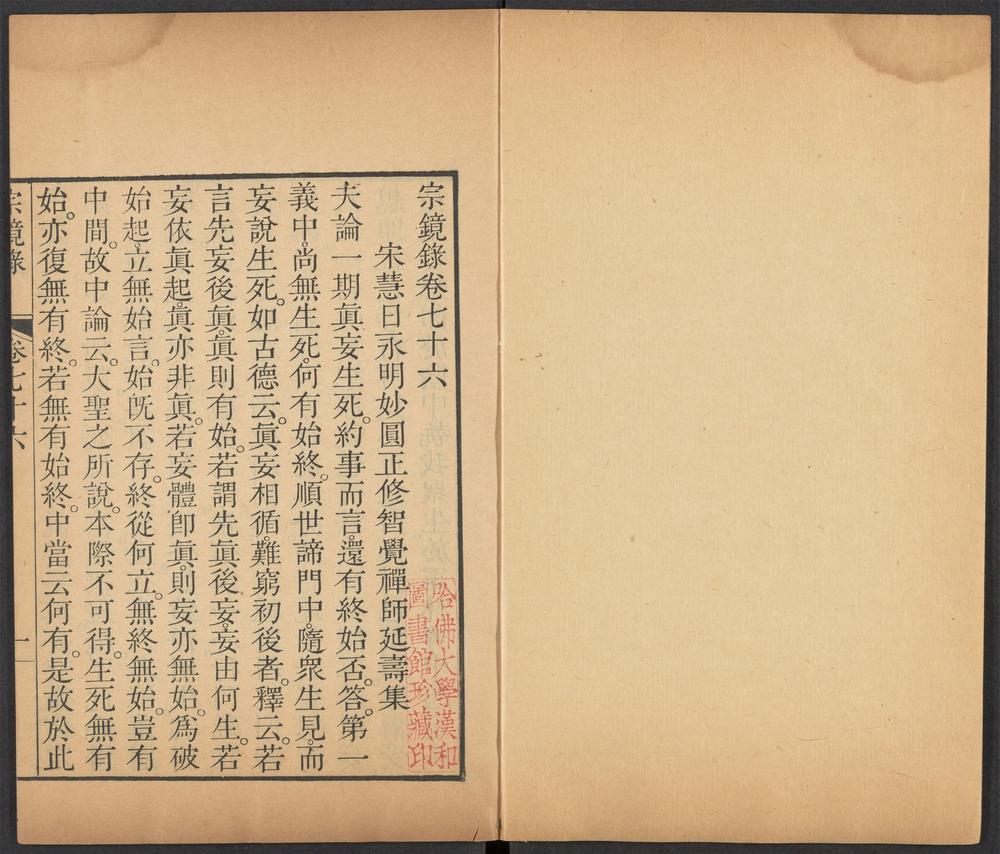 宗鏡錄卷七十六
宋慧日永明妙圓正修智覺禪師延壽集
夫論一期眞妄生死。約事而言。還有終始否。答。第一
義中。尚無生死。何有始終。順世諦門中。隨衆生見。而
妄說生死。如古德云。眞妄相循。難窮初後者。釋云。若
言先妄後眞。眞則有始。若謂先眞後妄。妄由何生。若
妄依眞起。眞亦非眞。若妄體卽眞。則妄亦無始。爲破
始起。立無始言。始旣不存。終從何立。無終無始。豈有
中間。故中論云。大聖之所說。本際不可得。生死無有
始。亦復無有終。若無有始終。中當云何有。是故於此
宗鏡錄 卷七十六 一
哈佛大學漢和
圖書館珍藏印